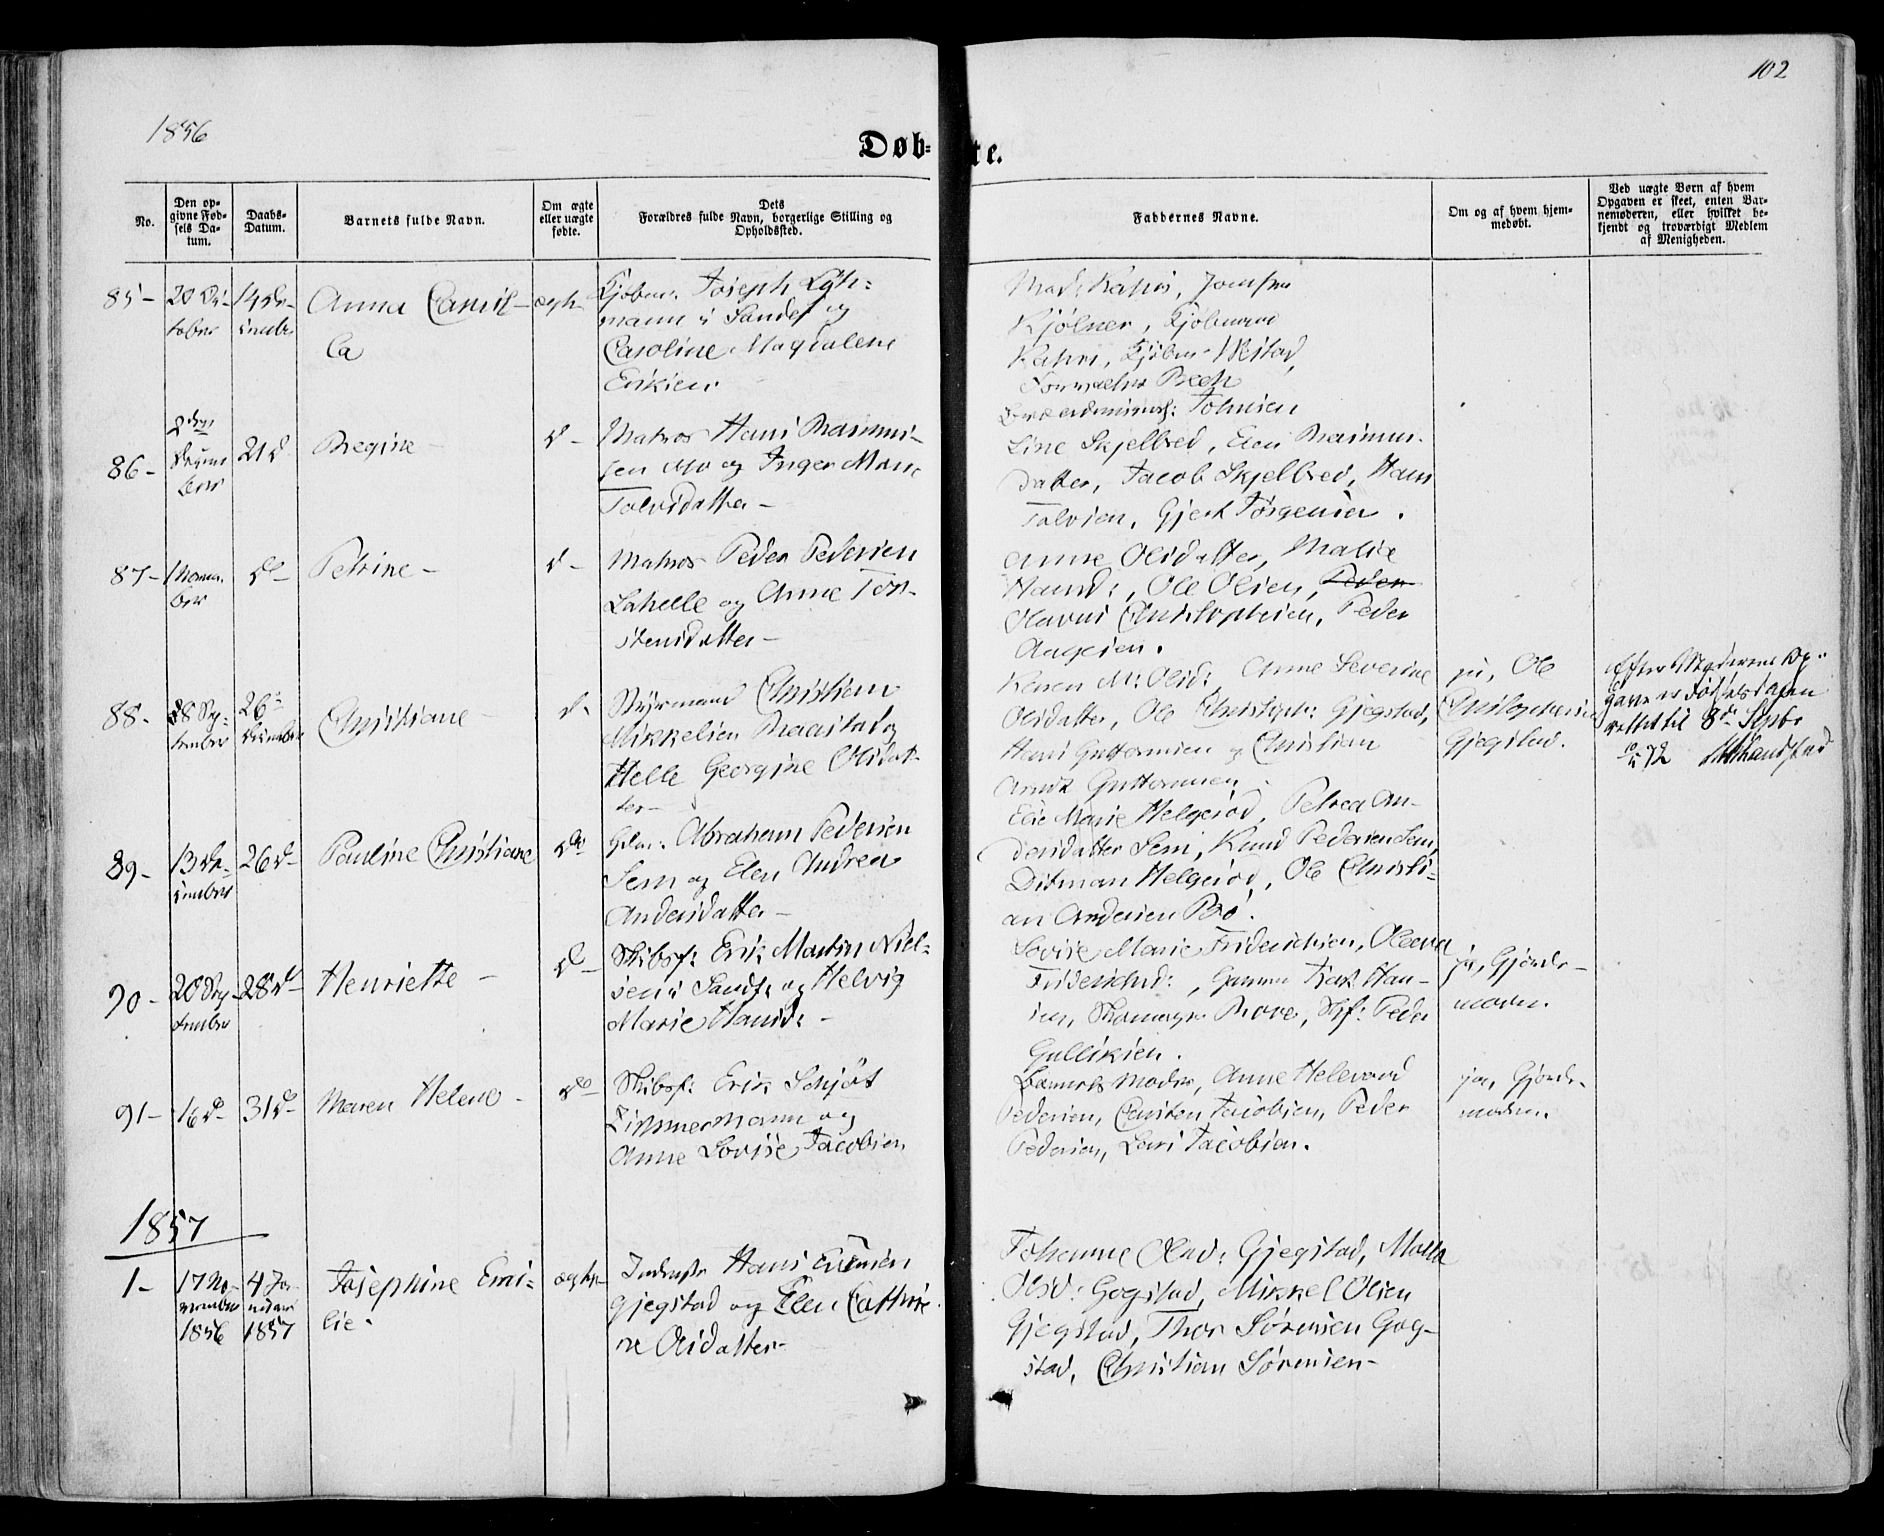 102
1856
Døb- te.
No.
Den op-
givne Fød-
sels Da-
tum.
Daabs-
Datum.
Barnets fulde Navn.
Om ægte
eller uægte
fødte.
Dets
Forældres fulde Navn, borgerlige Stilling og
Opholdssted.
Faddernes Navne.
Om og af hvem hjem-
medøbt.
Ved uægte Børn af hvem
Opgaven er skeet, enten Bar-
nemoderen, eller hvilket be-
kjendt og troværdigt Medlem
af Menigheden.
85-
20 Oc-
tober
14 De-
cember
Anna Camil-
la
ægte
Kjøbm. Joseph Leh-
mann i Sandef. og
Caroline Magdalene
Eriksen.
Mad: Jomfru
Kjølner, Kjøbmand
Kjøbm.
Bech
86-
2den
Decem-
ber
21 d
Regine -
d -
Matros Hans Rasmus-
sen Mo og Inger Marie
Talvsdatter -
Tolvsen
Line Skjelbred, Elen Rasmus-
datter, Jacob Skjelbred, Hans
Talvsen, Gjert Jørgensen.
87-
1 Novem-
ber
do -
Petrine -
d -
Matros Peder Pedersen
Lahelle og Anne Tor-
stensdatter -
Anne Olsdatter, Malie
Hansd:, Ole Olsen, Peder
Olavus Christophersen, Peder
Aagesen.
88-
28 Sep-
tember
26
December
Christiane -
d -
Styrmand Christian
Mikkelsen Raastad og
Helle Georgine Olsdat-
ter -
Karen M: Olsd:, Anne Severine
Olsdatter, Ole Christoph: Gjegstad,
Hans Guttormsen og Christian
Arndt Guttormsen.
ja, Ole
Christophersen
Gjegstad.
Efter Moderens Op-
gave er Fødselsdagen
rettet til 8de Septbr
72
89-
13 De-
cember
26 d -
Pauline Christiane
do
Gdm: Abraham Pedersen
Sem og Elen Andrea
Andersdatter -
Elie Marie Helgerød, Petrea An-
dersdatter Sem, Knud Pedersen Sem,
Ditman Helgerød, Ole Christi-
an Andersen Bø.
90-
20 Sep-
tember
28 d -
Henriette -
do -
Skibsf: Erik Martin Niel-
sen i Sandf. og Helvig
Marie Hansd: -
Lovise Marie Friderichsen, Oleana
Friderichsd:, Han-
sen, Skomager Bove, Skf: Peder
Gulliksen.
ja, Gjorde-
moder.
91-
16 d -
31 d -
Maren Helene -
do -
Skibsf: Erik Schjøt
Zimmermann og
Anne Lovise Jacobsen
Barnets Moder, Anne Helevard
Pedersen, Carsten Jacobsen, Peder
Pedersen, Lars Jacobsen.
ja, Gjorde-
moder.
1857
1-
17 No-
vember
1856
4 Ja-
nuar
1857
Josephine Emi-
lie.
ægte
Inderst Hans Evensen
Gjegstad og Elen Cathri-
ne Olsdatter -
Johanne Olsd: Gjegstad, Malla
Olsd: Gogstad, Mikkel Olsen
Gjegstad, Thor Sørensen Gog-
stad, Christian Sørensen -